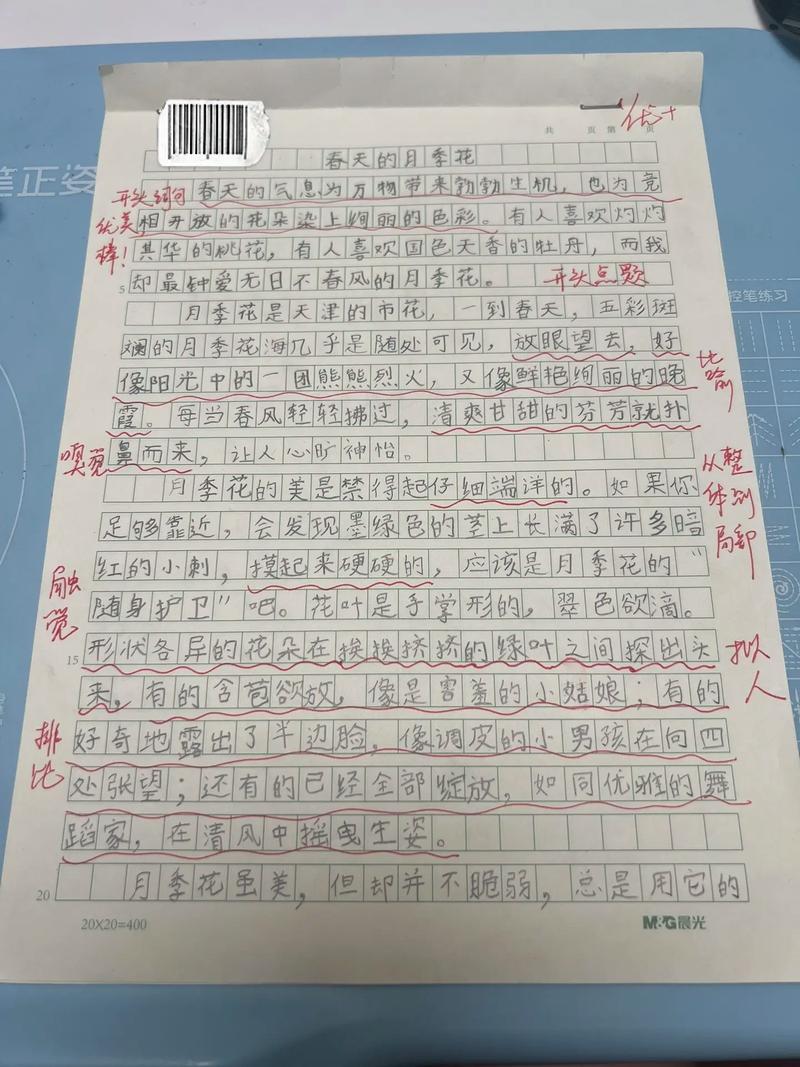 优+
共 页 第 页
春天的月季花
开头词句
优美,
棒!
春天的气息为万物带来勃勃生机,也为竞
相开放的花朵染上绚丽的色彩。有人喜欢灼灼
其华的桃花,有人喜欢国色天香的牡丹,而我
5 却最钟爱无日不春风的月季花。 开头点题
月季花是天津的市花,一到春天,五彩斑
斓的月季花海几乎是随处可见,放眼望去,好
像阳光中的一团熊熊烈火,又像鲜艳绚丽的晚
比喻
霞。每当春风轻轻拂过,清爽甘甜的芬芳就扑
嗅觉 鼻而来,让人心旷神怡。
月季花的美是禁得起仔细端洋的。如果你
从整体到局部
足够靠近,会发现墨绿色的茎上长满了许多暗
红的小刺,摸起来硬硬的,应该是月季花的“
触觉
随身护卫”吧。花叶是手掌形的,翠色欲滴。
15 形状各异的花朵在挨挨挤挤的绿叶之间探出头
拟人
来,有的含苞欲放,像是害羞的小姑娘;有的
排比
好奇地露出了半边脸,像调皮的小男孩在向四
处张望;还有的已经全部绽放,如同优雅的舞
蹈家,在清风中摇曳生姿。
20 月季花虽美,但却并不脆弱,总是用它的
20X20=400
M&G晨光
笔正姿
控笔练习